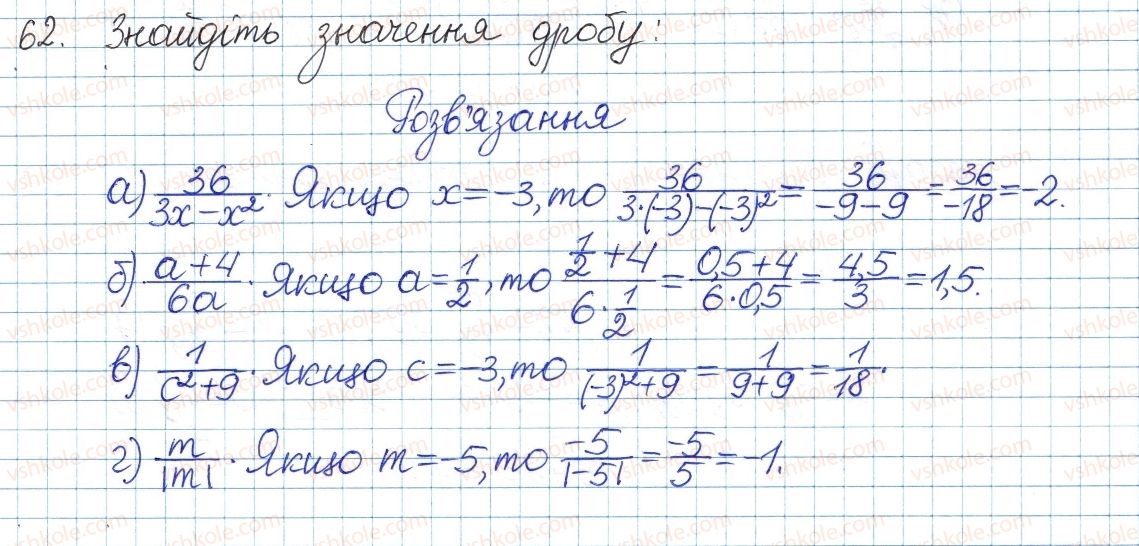 62. Знайдіть значення дробу:
Розв'язання
а) 36/(3x-x²). Якщо x=-3, то 36/(3·(-3)-(-3)²) = 36/(-9-9) = 36/-18 = -2.
б) (a+4)/(6a). Якщо a=1/2, то (1/2+4)/(6·1/2) = (0,5+4)/(6·0,5) = 4,5/3 = 1,5.
в) 1/(c²+9). Якщо c=-3, то 1/((-3)²+9) = 1/(9+9) = 1/18.
г) m/|m|. Якщо m=-5, то -5/|-5| = -5/5 = -1.